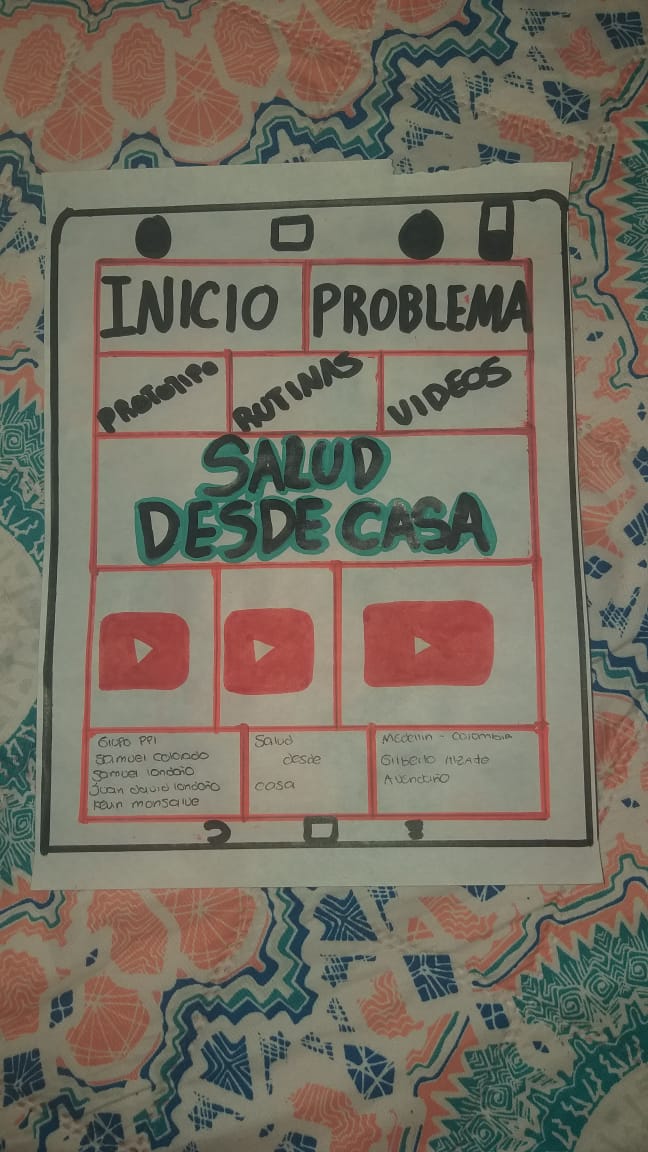 INICIO
PROBLEMA
PROTOTIPO
RUTINAS
VIDEOS
SALUD
DESDE CASA
Grupo PPI
Samuel colorado
Samuel londoño
Juan david londoño
kevin monsalve
Salud
desde
casa
Medellin - colombia
Gilberto Alzate
Avendaño